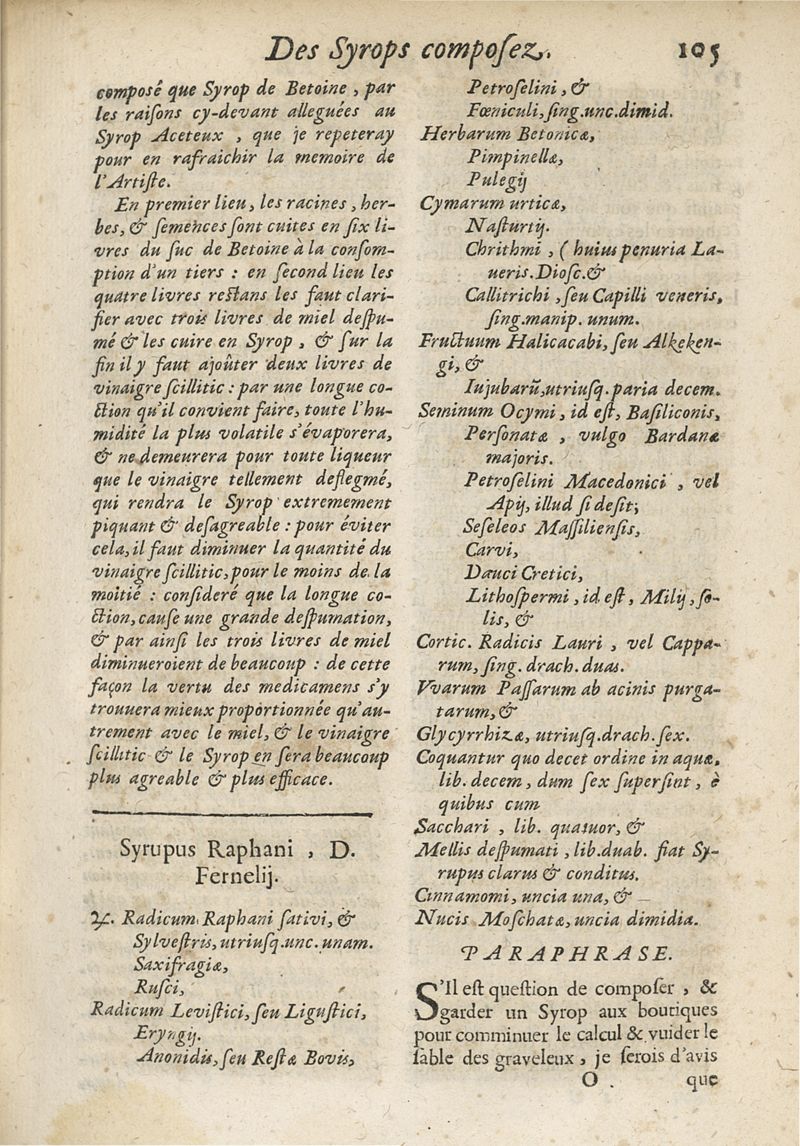 Des Syrops composez. 105
composé que Syrop de Betoine , par
les raiſons cy-devant alleguées au
Syrop Aceteux , que je repeteray
pour en rafraichir la memoire de
l'Artiſte.
En premier lieu, les racines, her-
bes, & ſemences ſont cuites en ſix li-
vres du ſuc de Betoine à la conſom-
ption d'un tiers : en ſecond lieu les
quatre livres reſtans les faut clari-
fier avec trois livres de miel deſpu-
mé & les cuire en Syrop , & ſur la
fin il y faut ajoûter deux livres de
vinaigre ſcillitic : par une longue co-
ction qu'il convient faire, toute l'hu-
midité la plus volatile s'évaporera,
& ne demeurera pour toute liqueur
que le vinaigre tellement deflegmé,
qui rendra le Syrop extremement
piquant & deſagreable : pour éviter
cela, il faut diminuer la quantité du
vinaigre ſcillitic, pour le moins de la
moitié : conſideré que la longue co-
ction, cauſe une grande deſpumation,
& par ainſi les trois livres de miel
diminueroient de beaucoup : de cette
façon la vertu des medicamens s'y
trouuera mieux proportionnée qu'au-
trement avec le miel, & le vinaigre
ſcillitic & le Syrop en ſera beaucoup
plus agreable & plus efficace.
Syrupus Raphani , D.
Fernelij.
℞. Radicum Raphani ſativi, &
Sylveſtris, utriuſq. unc. unam.
Saxifragiæ,
Ruſci,
Radicum Leviſtici, ſeu Liguſtici,
Eryngij.
Anonidis, ſeu Reſtæ Bovis,
Petroſelini , &
Fœniculi, ſing. unc. dimid.
Herbarum Betonicæ,
Pimpinellæ,
Pulegij
Cymarum urticæ,
Naſturtij.
Chrithmi , ( huius penuria La-
ueris. Dioſc. &
Callitrichi , ſeu Capilli veneris,
ſing. manip. unum.
Fructuum Halicacabi, ſeu Alkeken-
gi, &
Iujubarũ, utriuſq. paria decem.
Seminum Ocymi , id eſt, Baſiliconis,
Perſonatæ , vulgo Bardanæ
majoris.
Petroſelini Macedonici , vel
Apij, illud ſi deſit;
Seſeleos Maſſilienſis,
Carvi,
Dauci Cretici,
Lithoſpermi , id eſt , Milij , ſo-
lis, &
Cortic. Radicis Lauri , vel Cappa-
rum, ſing. drach. duas.
Vvarum Paſſarum ab acinis purga-
tarum, &
Glycyrrhizæ, utriuſq. drach. ſex.
Coquantur quo decet ordine in aquæ,
lib. decem , dum ſex ſuperſint , è
quibus cum
Sacchari , lib. quatuor, &
Mellis deſpumati , lib. duab. fiat Sy-
rupus clarus & conditus.
Cinnamomi , uncia una, &
Nucis Moſchatæ, uncia dimidia.
PARAPHRASE.
S'Il eſt queſtion de compoſer , &
garder un Syrop aux boutiques
pour comminuer le calcul & vuider le
ſable des graveleux , je ſerois d'avis
O que